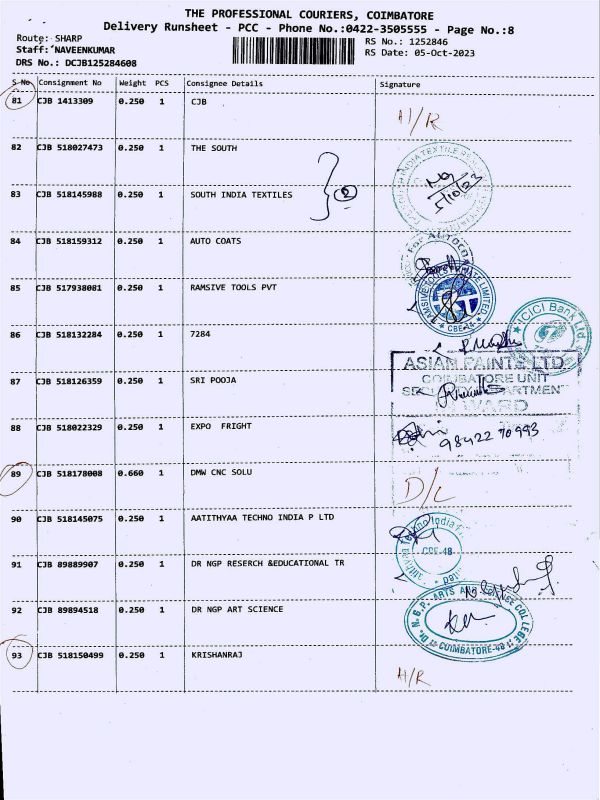 THE PROFESSIONAL COURIERS, COIMBATORE
Delivery Runsheet - PCC - Phone No.:0422-3505555 - Page No.:8
Route: SHARP
RS No.: 1252846
Staff: NAVEENKUMAR
RS Date: 05-Oct-2023
DRS No.: DCJB125284608
S No Consignment No Weight PCS Consignee Details Signature
81 CJB 1413309 0.250 1 CJB H/R
82 CJB 518027473 0.250 1 THE SOUTH
83 CJB 518145988 0.250 1 SOUTH INDIA TEXTILES 2 5/10/23
84 CJB 518159312 0.250 1 AUTO COATS
85 CJB 517938081 0.250 1 RAMSIVE TOOLS PVT
CBE-14
86 CJB 518132284 0.250 1 7284
ICICI Bank Ltd
ASIAN PAINTS LTD
87 CJB 518126359 0.250 1 SRI POOJA
COIMBATORE UNIT
INWARD
88 CJB 518022329 0.250 1 EXPO FRIGHT
98422 70993
89 CJB 518178008 0.660 1 DMW CNC SOLU D/L
90 CJB 518145075 0.250 1 AATITHYAA TECHNO INDIA P LTD
91 CJB 89889907 0.250 1 DR NGP RESERCH &EDUCATIONAL TR
92 CJB 89894518 0.250 1 DR NGP ART SCIENCE
Dr. N.G.P. ARTS AND SCIENCE COLLEGE
COIMBATORE-48
93 CJB 518150499 0.250 1 KRISHANRAJ H/R